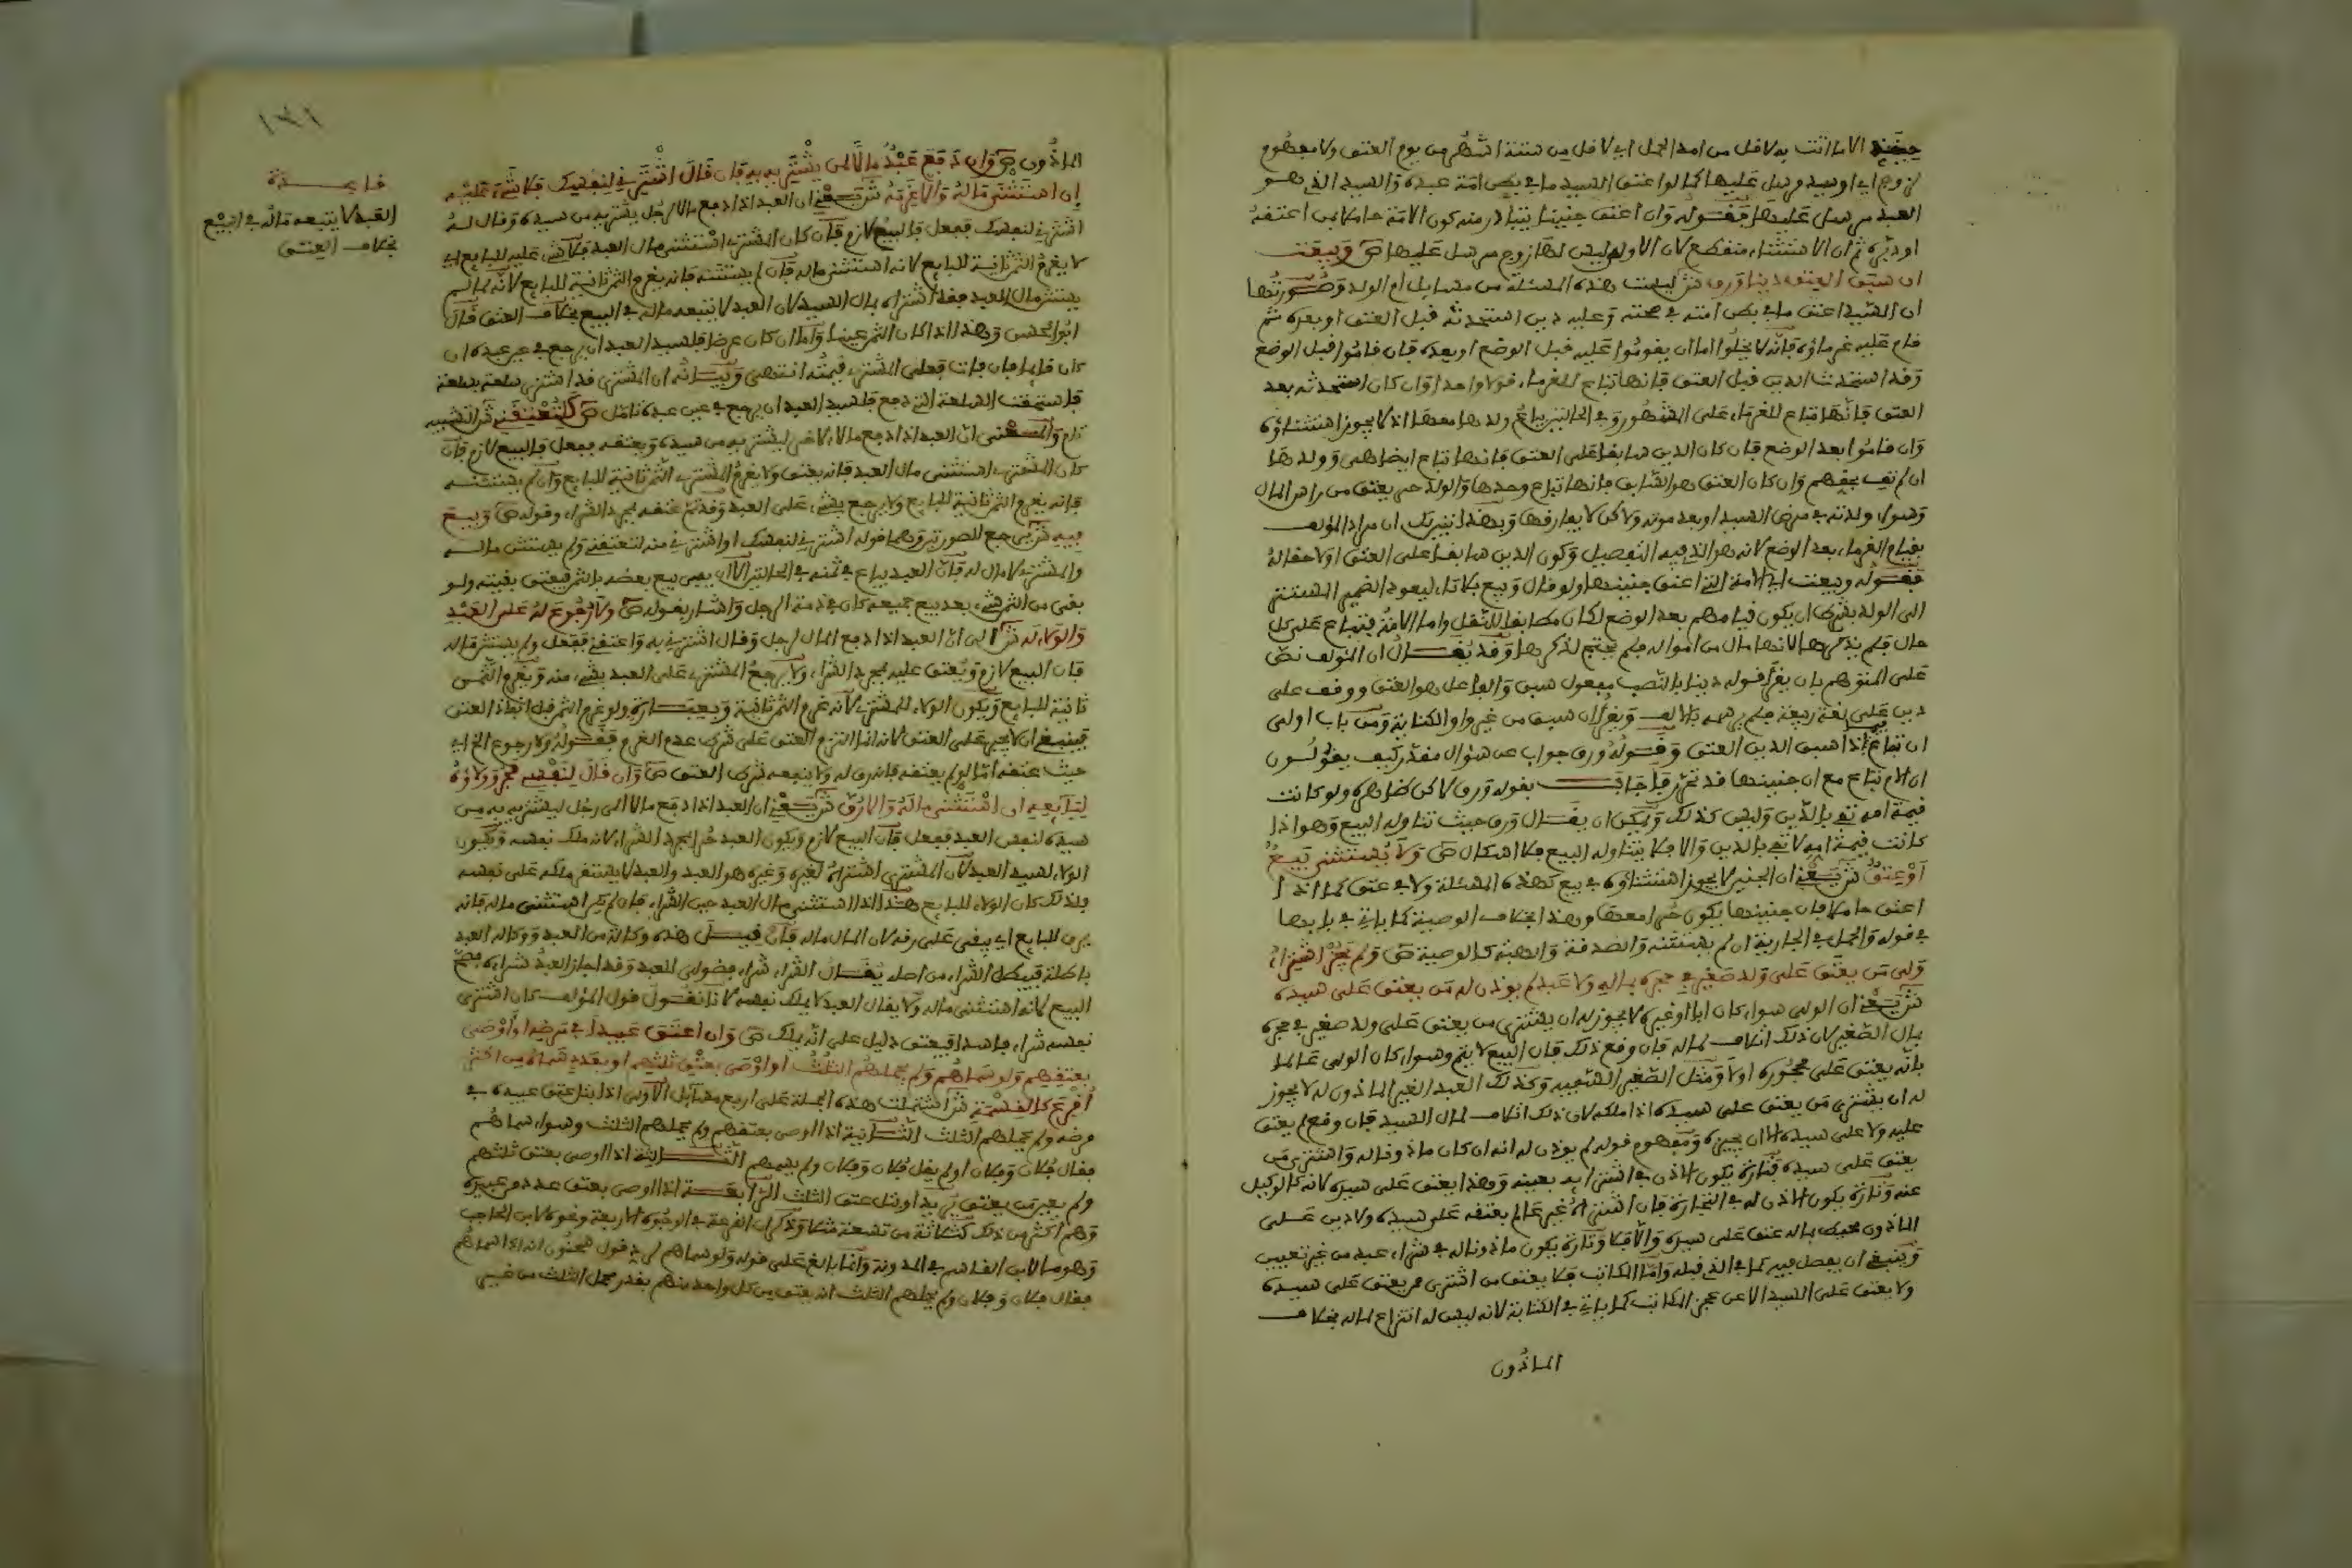 حينئذ الا ما اتت به لاقل من امد الحمل اي لاقل من ستة اشهر من يوم العتق ولا مفهوم
لزوج اي او سيد مرسل عليها كما لو اعتق السيد ما في بطن امة عبده والسيد الذي هو
العبد مرسل عليها فقوله وان اعتق جنينا يتبادر منه كون الامة حاملا من اعتقه
او دبره ثم ان الاستثناء منقطع لان الاولى ليس لها زوج مرسل عليها ص وبيعت
ان سبق العتق دينا ورق ش ليست هذه المسئلة من مسايل ام الولد وصورتها
ان السيد اعتق ما في بطن امته في صحته وعليه دين استحدثه قبل العتق او بعده ثم
قام عليه غرماؤه فانه لا يخلوا اما ان يقوموا عليه قبل الوضع او بعده فان قاموا قبل الوضع
وقد استحدث الدين قبل العتق فانها تباع للغرماء قولا واحدا وان كان استحدثه بعد
العتق فانها تباع للغرماء على المشهور وفي الحالتين يباع ولدها معها اذ لا يجوز استثناؤه
وان قاموا بعد الوضع فان كان الدين سابقا على العتق فانها تباع ايضا هي وولدها
ان لم تف بحقهم وان كان العتق هو السابق فانها تباع وحدها والولد حر يعتق من راس المال
وسواء ولدته في مرض السيد او بعد موته ولاكن لا يفارقها وبهذا تبين لك ان مراد المؤلف
بقيام الغرماء بعد الوضع لانه هو الذي فيه التفصيل وكون الدين سابقا على العتق اولا حقا له
فقوله وبيعت اي الامة التي اعتق جنينها ولو قال وبيع بلا تاء ليعود الضمير المستتر
الى الولد بشرط ان يكون قيامهم بعد الوضع لكان مطابقا للنقل واما الامة فتباع على كل
حال فلم يذكرها لانها مال من امواله فلم يحتج لذكرها وقد يقال ان المؤلف نص
على المتوهم بان يقرا قوله دينا بالنصب مفعول سبق والفاعل هو العتق ووقف على
دين على لغة ربيعة فلم يرسمه بالالف ويقرا ان سبق من غير واو الكناية ومن باب اولى
ان تباع فيما اذا سبق الدين العتق وقوله ورق جواب عن سؤال مقدر كيف يقولون
ان الام تباع مع ان جنينها قد تحرر فاجاب بقوله ورق لاكن ظاهره ولو كانت
قيمة امه تفي بالدين وليس كذلك ويمكن ان يقال ورق حيث تناوله البيع وهو اذا
كانت قيمة امه لا تفي بالدين والا فلا يتناوله البيع فلا اشكال ص ولا يستثنى ببيع
او عتق ش يعني ان الجنين لا يجوز استثناؤه في بيع كهذه المسئلة ولا في عتق كما اذا
اعتق حاملا فان جنينها يكون حرا معها وهذا بخلاف الوصية كما ياتي في بابها
في قوله والحمل في الجارية ان لم يستثنه والصدقة والهبة كالوصية ص ولم يجز اشتراء
ولي من يعتق على ولد صغير في حجره بماله ولا عبد لم يوذن له من يعتق على سيده
ش يعني ان الولي سواء كان ابا او غيره لا يجوز له ان يشتري من يعتق على ولد صغير في حجره
بمال الصغير لان ذلك اتلاف لماله فان وقع ذلك فان البيع لا يتم وسواء كان الولي عالما
بانه يعتق على محجوره اولا ومثل الصغير السفيه وكذلك العبد الغير الماذون له لا يجوز
له ان يشتري من يعتق على سيده اذا ملكه لان ذلك اتلاف لمال السيد فان وقع لم يعتق
عليه ولا على سيده الا ان يجيزه ومفهوم قوله لم يوذن له انه ان كان ماذونا له واشترى من
يعتق على سيده فتارة يكون الاذن في اشتراءه بعينه وهذا يعتق على سيده لانه كالوكيل
عنه وتارة يكون الاذن له في التجارة فان اشتراه غير عالم بعتقه على سيده ولا دين على
الماذون محيط بماله عتق على سيده والا فلا وتارة يكون ماذونا له في شراء عبد من غير تعيين
وينبغي ان يفصل فيه كما في الذي قبله واما المكاتب فلا يعتق من اشترى ممن يعتق على سيده
ولا يعتق على السيد الا عن عجز المكاتب كما ياتي في الكتابة لانه ليس له انتزاع ماله بخلاف
الماذون
١٣١
الماذون ص وان دفع عبد مالا لمن يشتريه به فان قال اشترني لنفسك فلا شيء عليه
ان استثنى ماله والا غرمه ش يعني ان العبد اذا دفع مالا لرجل يشتريه من سيده وقال له
اشترني لنفسك ففعل فالبيع لازم فان كان المشتري استثنى مال العبد فلا شيء عليه للبايع اي
لا يغرم الثمن ثانية للبايع لانه استثنى ماله فان لم يستثنه فانه يغرم الثمن ثانية للبايع لانه لما لم
يستثن مال العبد فقد اشتراه بمال السيد لان العبد لا يتبعه ماله في البيع بخلاف العتق قال
ابو الحسن وهذا اذا كان الثمن عينا واما ان كان عرضا فلسيد العبد ان يرجع في عين عبده ان
كان قايما فان فات فعلى المشتري قيمته انتهى وبيانه ان المشتري قد اشترى سلعة بسلعة
فاستحقت السلعة التي دفع فلسيد العبد ان يرجع في عين عبده تامل ص كلتعتقني ش التشبيه
تام والمعنى ان العبد اذا دفع مالا لاخر ليشتريه من سيده ويعتقه ففعل فالبيع لازم فان
كان المشتري استثنى مال العبد فانه يعتق ولا يغرم المشتري الثمن ثانية للبايع وان لم يستثنه
فانه يغرم الثمن ثانية للبايع ولا يرجع بشيء على العبد وقد تم عتقه بمجرد الشراء وقوله ص وبيع
فيه ش يرجع للصورتين وهما قوله اشترني لنفسك او اشترني منه لتعتقني ولم يستثن ماله
والمشتري لا مال له فان العبد يباع في ثمنه في الحالتين الا ان يفي بيع بعضه بالثمن فيعتق بقيته ولو
بقي من الثمن شيء بعد بيع جميعه كان في ذمة الرجل واشار بقوله ص ولا رجوع له على العبد
والولاء له ش الى ان العبد اذا دفع المال لرجل وقال اشترني به واعتقني ففعل ولم يستثن ماله
فان البيع لازم ويعتق عليه بمجرد الشراء ولا يرجع المشتري على العبد بشيء منه ويغرم الثمن
ثانية للبايع ويكون الولاء للمشتري لانه غرم الثمن ثانية وبعبارة ولو غرم الثمن قبل انفاذ العتق
فينبغي ان لا يجبر على العتق لانه انما التزم العتق على شرط عدم الغرم فقوله ولا رجوع الخ اي
حيث عتقه اما لو لم يعتقه فانه رق له ولا ينفعه شرط العتق ص وان قال لنفسي فحر وولاؤه
لبايعه ان استثنى ماله والا رق ش يعني ان العبد اذا دفع مالا الى رجل ليشتريه به من
سيده لنفس العبد ففعل فان البيع لازم ويكون العبد حرا بمجرد الشراء لانه ملك نفسه ويكون
الولاء لسيد العبد لان المشتري اشتراه لغيره وغيره هو العبد والعبد لا يستقر ملكه على نفسه
فلذلك كان الولاء للبايع هذا اذا استثنى مال العبد حين الشراء فان لم يكن استثنى ماله فانه
يرق للبايع اي يبقى على رقه لان المال ماله فان قيل هذه وكالة من العبد ووكالة العبد
باطلة فيبطل الشراء من اصله يقال الشراء شراء فضولي للعبد وقد اجاز العبد شراءه فصح
البيع لانه استثنى ماله ولا يقال العبد لا يملك نفسه لانا نقول قول المؤلف كان اشترى
نفسه شراء فاسدا فيعتق دليل على انه يملك ص وان اعتق عبيدا في مرضه او اوصى
بعتقهم ولو سماهم ولم يحملهم الثلث او اوصى بعتق ثلثهم او بعدد سماه من اكثر
اقرع كالقسمة ش اشتملت هذه الجملة على اربع مسايل الاولى اذا بتل عتق عبيده في
مرضه ولم يحملهم الثلث الثانية اذا اوصى بعتقهم ولم يحملهم الثلث وسواء سماهم
فقال فلان وفلان او لم يقل فلان وفلان ولم يسمهم الثالثة اذا اوصى بعتق ثلثهم
ولم يعين من يعتق الرابعة اذا اوصى بعتق عدد من عبيده
وهم اكثر من ذلك كثلاثة من تسعة مثلا وذكر ان القرعة في الوجوه الاربعة ونحوه لابن الحاجب
وهو ما لابن القاسم في المدونة وانما بالغ على قوله ولو سماهم لرد قول سحنون انه اذا سماهم
فقال فلان وفلان ولم يحملهم الثلث انه يعتق من كل واحد منهم بقدر محمل الثلث من غير
فايدة
العبد لا يتبعه ماله في البيع
بخلاف العتق